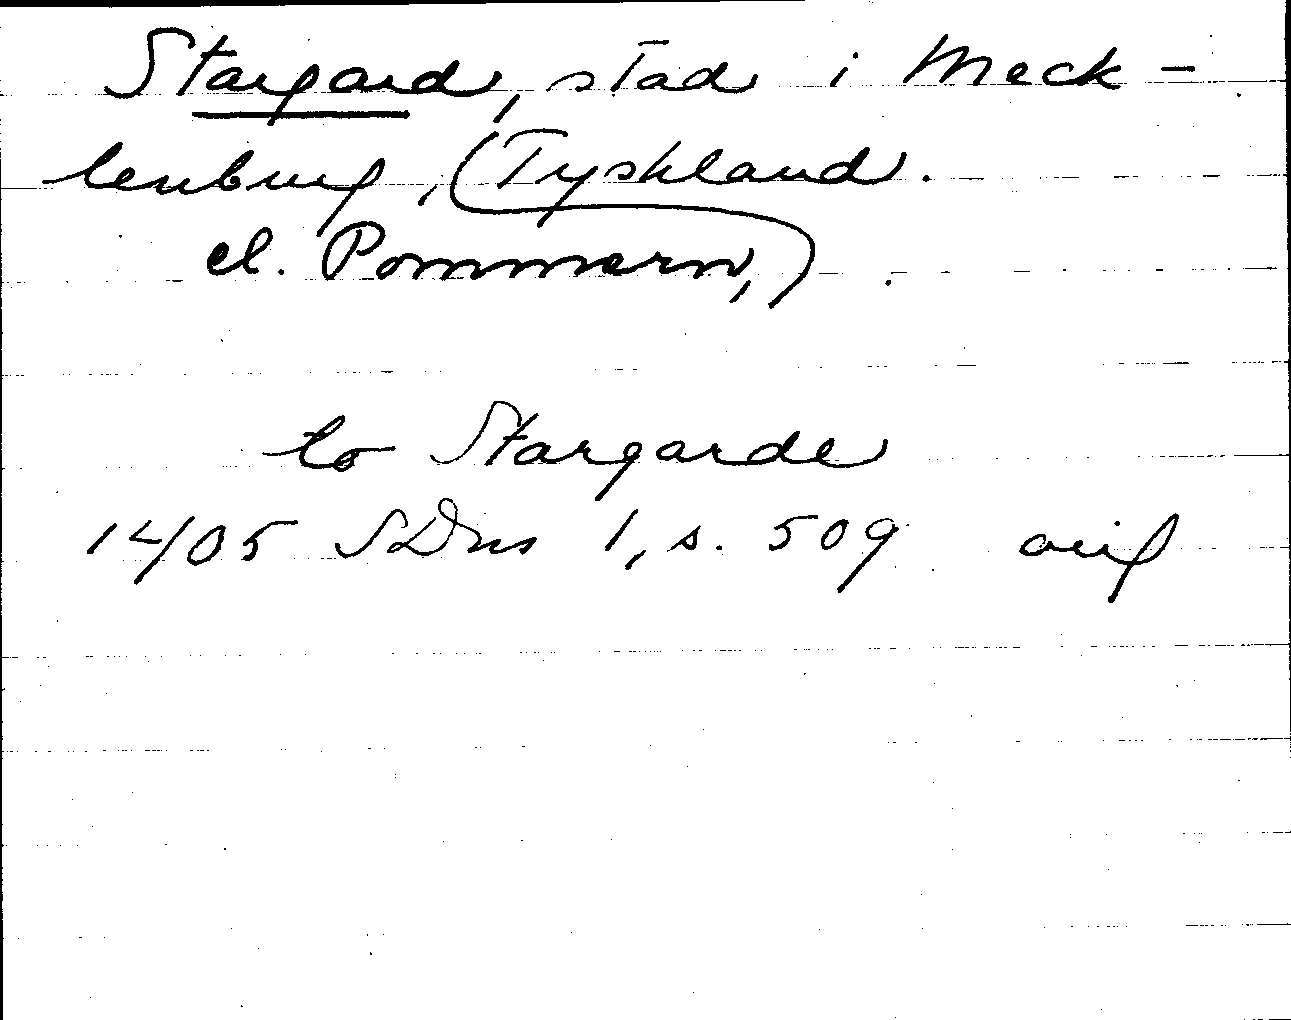 Stargard, stad i Meck-
lenburg, (Tyskland.
el. Pommern,)
to Stargarde
1405 SDns 1, s. 509 orig